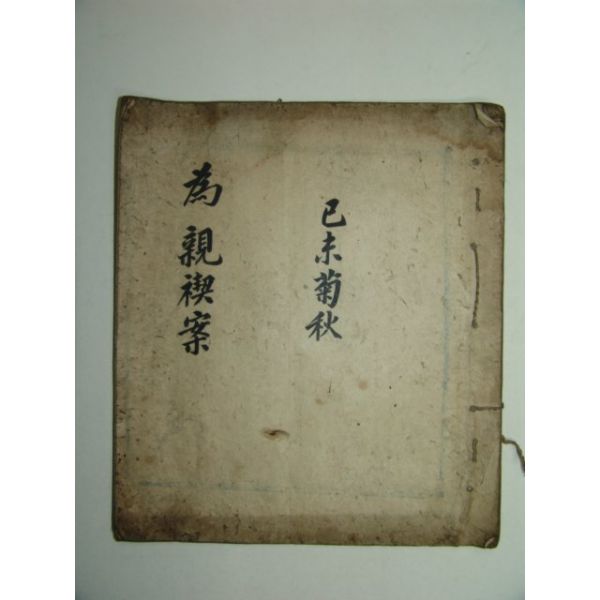 己未菊秋
為親禊案